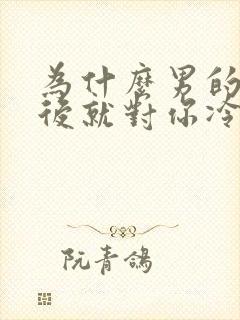 為什麼男的
後就對你冷
阮青鴿